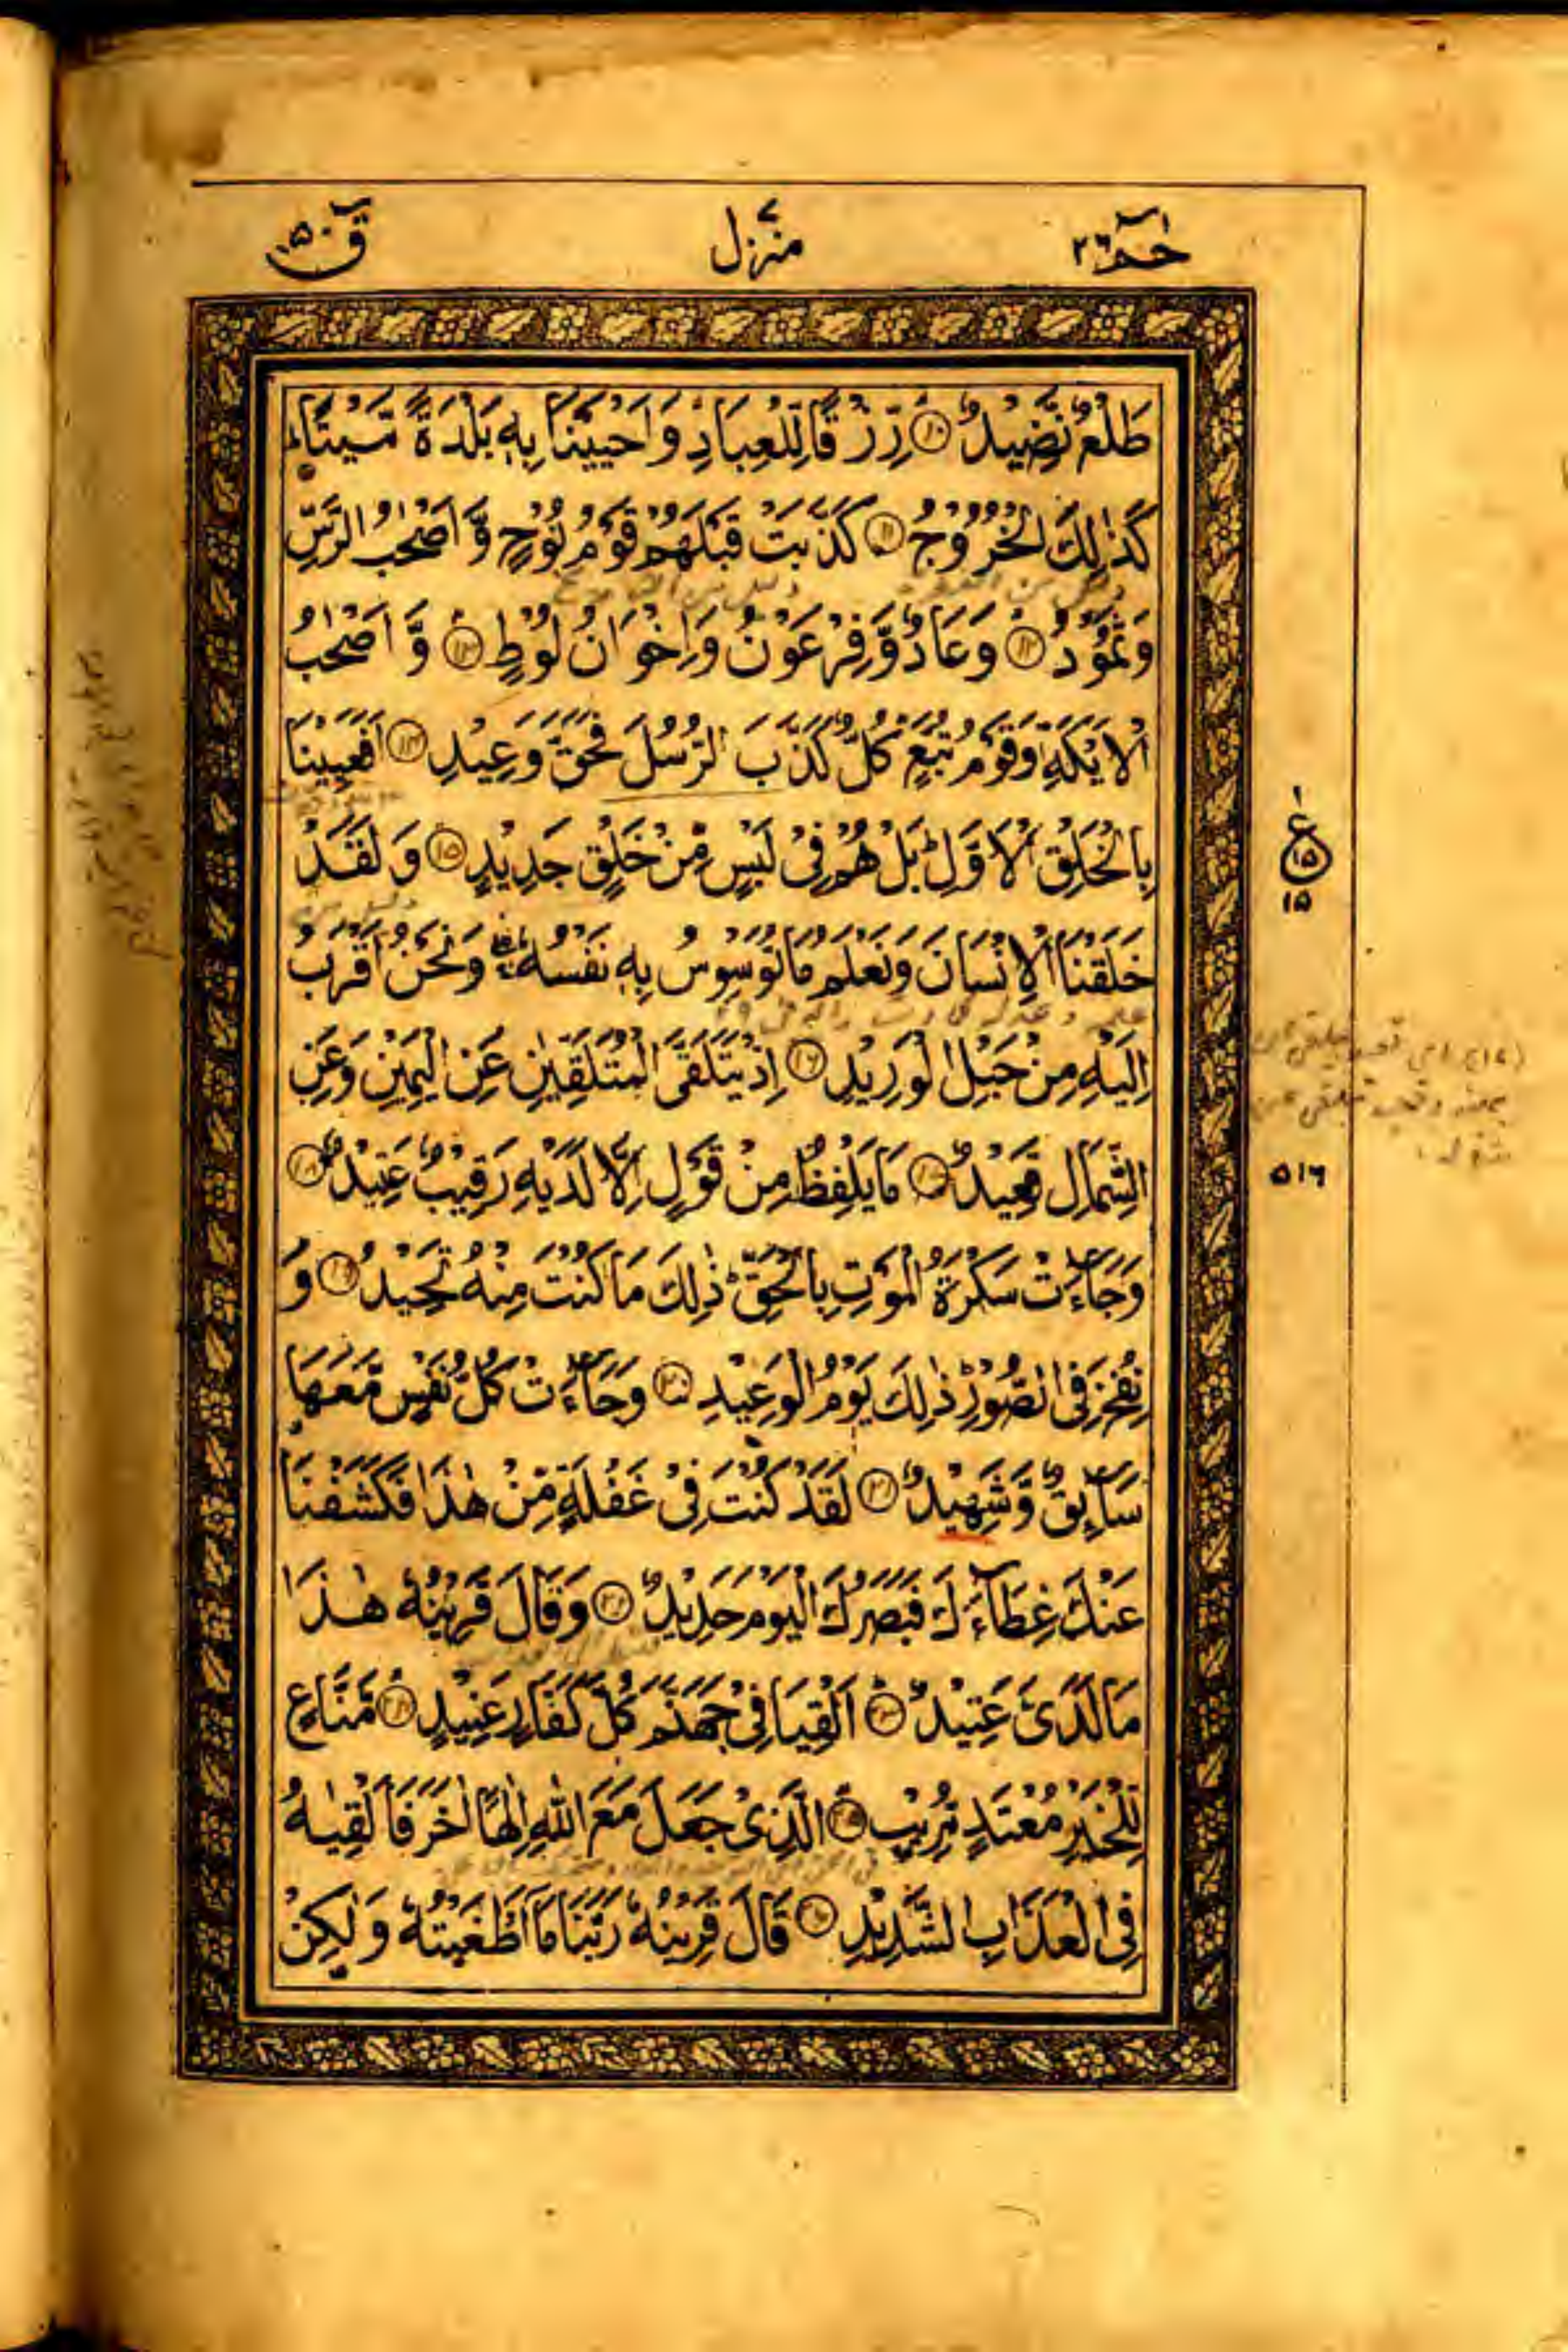 حٰمٓ ٢٦
منزل ٧
قٓ ٥٠
طَلْعٌ نَّضِيْدٌ ۙ﴿۱۰﴾ رِّزْقًا لِّلْعِبَادِ ۙ وَاَحْيَيْنَا بِهٖ بَلْدَةً مَّيْتًا ؕ
كَذٰلِكَ الْخُرُوْجُ ﴿۱۱﴾ كَذَّبَتْ قَبْلَهُمْ قَوْمُ نُوْحٍ وَّاَصْحٰبُ الرَّسِّ
وَثَمُوْدُ ۙ﴿۱۲﴾ وَعَادٌ وَّفِرْعَوْنُ وَاِخْوَانُ لُوْطٍ ۙ﴿۱۳﴾ وَّاَصْحٰبُ
الْاَيْكَةِ وَقَوْمُ تُبَّعٍ ؕ كُلٌّ كَذَّبَ الرُّسُلَ فَحَقَّ وَعِيْدِ ﴿۱۴﴾ اَفَعَيِيْنَا
بِالْخَلْقِ الْاَوَّلِ ؕ بَلْ هُمْ فِيْ لَبْسٍ مِّنْ خَلْقٍ جَدِيْدٍ ﴿۱۵﴾ وَلَقَدْ
ع
۱
۱۵
۱۵
خَلَقْنَا الْاِنْسَانَ وَنَعْلَمُ مَا تُوَسْوِسُ بِهٖ نَفْسُهٗ ۖۚ وَنَحْنُ اَقْرَبُ
اِلَيْهِ مِنْ حَبْلِ الْوَرِيْدِ ﴿۱۶﴾ اِذْ يَتَلَقَّى الْمُتَلَقِّيٰنِ عَنِ الْيَمِيْنِ وَعَنِ
الشِّمَالِ قَعِيْدٌ ﴿۱۷﴾ مَا يَلْفِظُ مِنْ قَوْلٍ اِلَّا لَدَيْهِ رَقِيْبٌ عَتِيْدٌ ﴿۱۸﴾
۵۱۶
وَجَآءَتْ سَكْرَةُ الْمَوْتِ بِالْحَقِّ ؕ ذٰلِكَ مَا كُنْتَ مِنْهُ تَحِيْدُ ﴿۱۹﴾ وَ
نُفِخَ فِي الصُّوْرِ ؕ ذٰلِكَ يَوْمُ الْوَعِيْدِ ﴿۲۰﴾ وَجَآءَتْ كُلُّ نَفْسٍ مَّعَهَا
سَآئِقٌ وَّشَهِيْدٌ ﴿۲۱﴾ لَقَدْ كُنْتَ فِيْ غَفْلَةٍ مِّنْ هٰذَا فَكَشَفْنَا
عَنْكَ غِطَآءَكَ فَبَصَرُكَ الْيَوْمَ حَدِيْدٌ ﴿۲۲﴾ وَقَالَ قَرِيْنُهٗ هٰذَا
مَا لَدَيَّ عَتِيْدٌ ؕ﴿۲۳﴾ اَلْقِيَا فِيْ جَهَنَّمَ كُلَّ كَفَّارٍ عَنِيْدٍ ۙ﴿۲۴﴾ مَّنَّاعٍ
لِّلْخَيْرِ مُعْتَدٍ مُّرِيْبِ ۙ﴿۲۵﴾ الَّذِيْ جَعَلَ مَعَ اللّٰهِ اِلٰهًا اٰخَرَ فَاَلْقِيٰهُ
فِي الْعَذَابِ الشَّدِيْدِ ﴿۲۶﴾ قَالَ قَرِيْنُهٗ رَبَّنَا مَآ اَطْغَيْتُهٗ وَلٰكِنْ